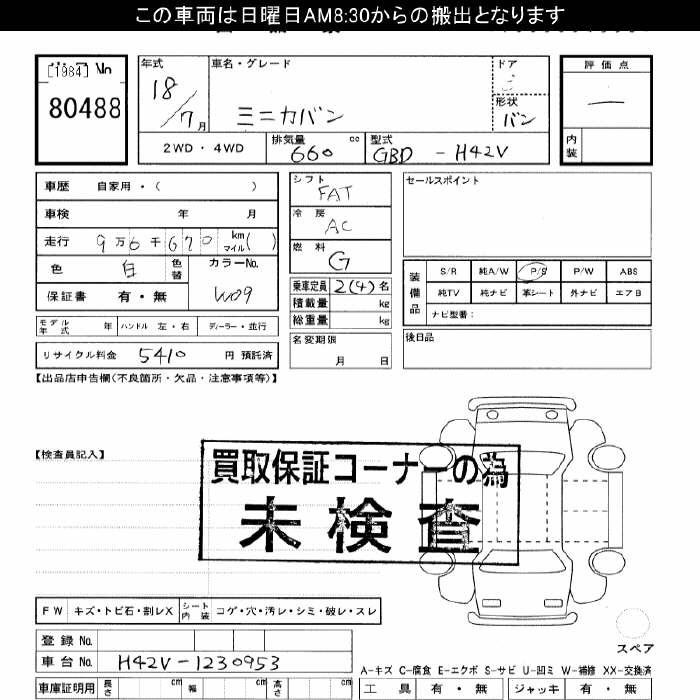 この車両は日曜日AM8:30からの搬出となります
[1984] No
80488
年式
18/7月
車名・グレード
ミニカバン
ドア
形状
バン
評価点
—
内装
2WD・4WD
排気量
660 cc
型式
GBD - H42V
車歴 自家用・( )
車検 年 月
走行 9万6千670 km マイル( )
色 白 色替
カラーNo.
W09
保証書 有・無
モデル年式 年 ハンドル 左・右 ディーラー・並行
リサイクル料金 5410 円 預託済
シフト
FAT
冷房
AC
燃料
G
乗車定員 2(4)名
積載量 kg
総重量 kg
名変期限
月 日
セールスポイント
装備品
S/R 純A/W P/S P/W ABS
純TV 純ナビ 革シート 外ナビ エアB
ナビ型番:
後日品
【出品店申告欄(不良箇所・欠品・注意事項等)】
【検査員記入】
買取保証コーナーの為
未検査
FW キズ・トビ石・割レX シート内装 コゲ・穴・汚レ・シミ・破レ・スレ
登録No.
車台No. H42V-1230953
車庫証明用 長さ cm 幅 cm 高さ cm
スペア
A-キズ C-腐食 E-エクボ S-サビ U-凹ミ W-補修 XX-交換済
工具 有・無 ジャッキ 有・無